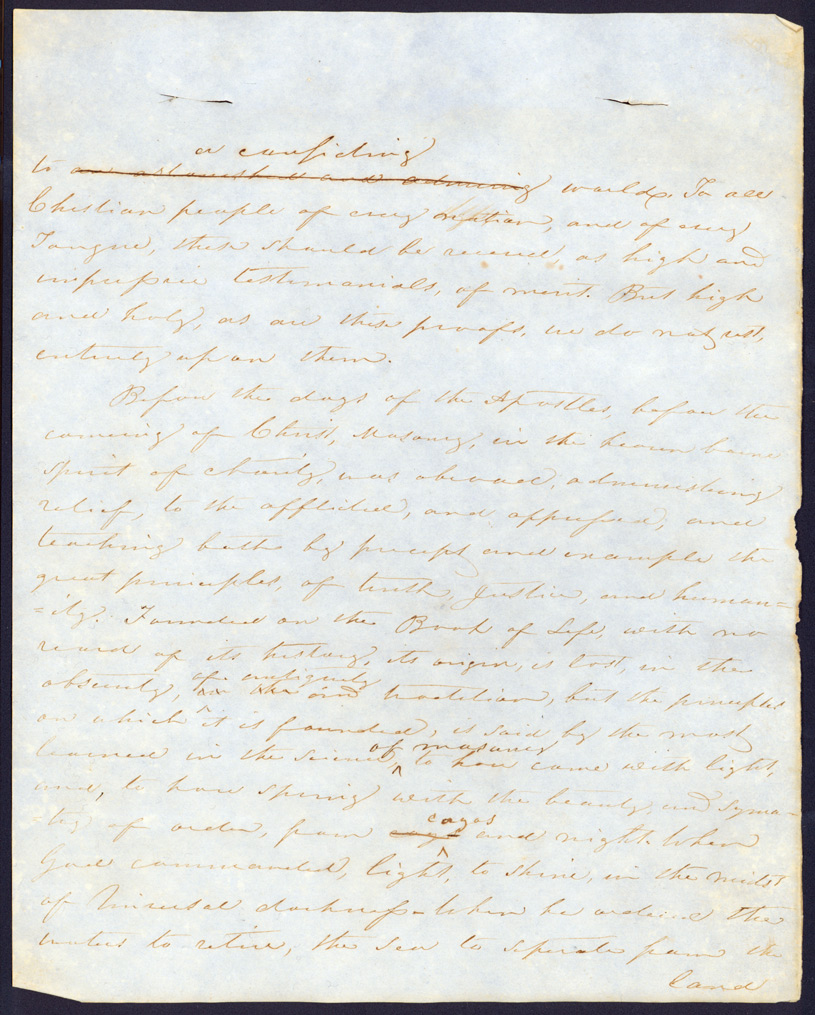 a confiding
to an astonished and admiring world. To all
Christian people of every nation, and of every
Tongue, these should be received, as high and
testimonials, of merit. But high
and holy, as are these proofs, we do not rest,
entirely upon them.
Before the days of the Apostles, before the
coming of Christ, Masonry, in the heaven borne
spirit of charity, was abroad, administering
relief, to the afflicted, and oppressed, and
teaching both by precept and example the
great principles, of truth, Justice, and human=
=ity. Founded on the Book of Life, with no
record of its history, its origin, is lost, in the
of antiquity
obscurity, tradition, but the principles
on which it is founded, is said by the most
of masonry
learned in the science, to have come with light,
and, to have spring with the beauty, and Syma=
caos
=try of order, from and night. When
God commanded, light, to shine, in the midst
of Universal darkness - When he ordered the
waters to retire, the sea to seperate from the
land